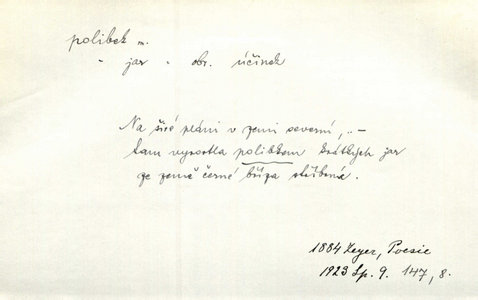 polibek m.
" jar " obr. účinek
Na širé pláni v zemi severní, .. –
tam vyrostla polibkem krátkých jar
ze země černé bříza stříbrná.
1884 Zeyer, Poesie
1923 Sp. 9. 147, 8.